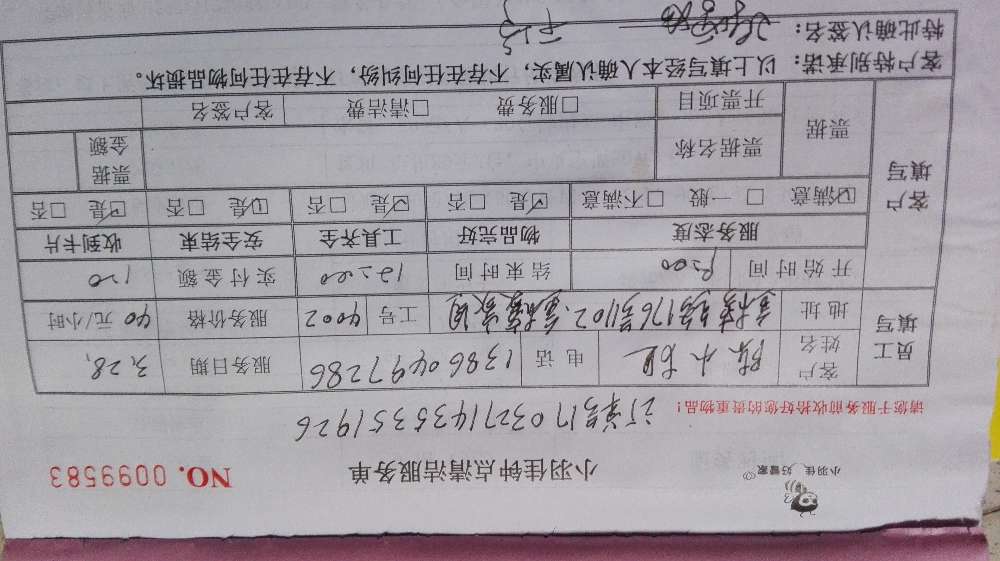 小羽佳 好管家
小羽佳钟点清洁服务单
NO. 0099583
订单号17032714353519 26
请您于服务前收拾好您的贵重物品！
员工填写
客户姓名 陈小姐 电话 13860497286 服务日期 3,28,
地址 金榜路176号1102. 金榜家园 工号 4002 服务价格 40 元/小时
客户填写
开始时间 9:00 结束时间 12:00 实付金额 120
服务态度 物品完好 工具齐全 安全结束 收到卡片
☑满意 □一般 □不满意 ☑是 □否 ☑是 □否 ☑是 □否 ☑是 □否
票据 票据名称 票据金额
开票项目 □服务费 □清洁费 客户签名
客户特别承诺：以上填写经本人确认属实，不存在任何纠纷，不存在任何物品损坏。
特此确认签名：